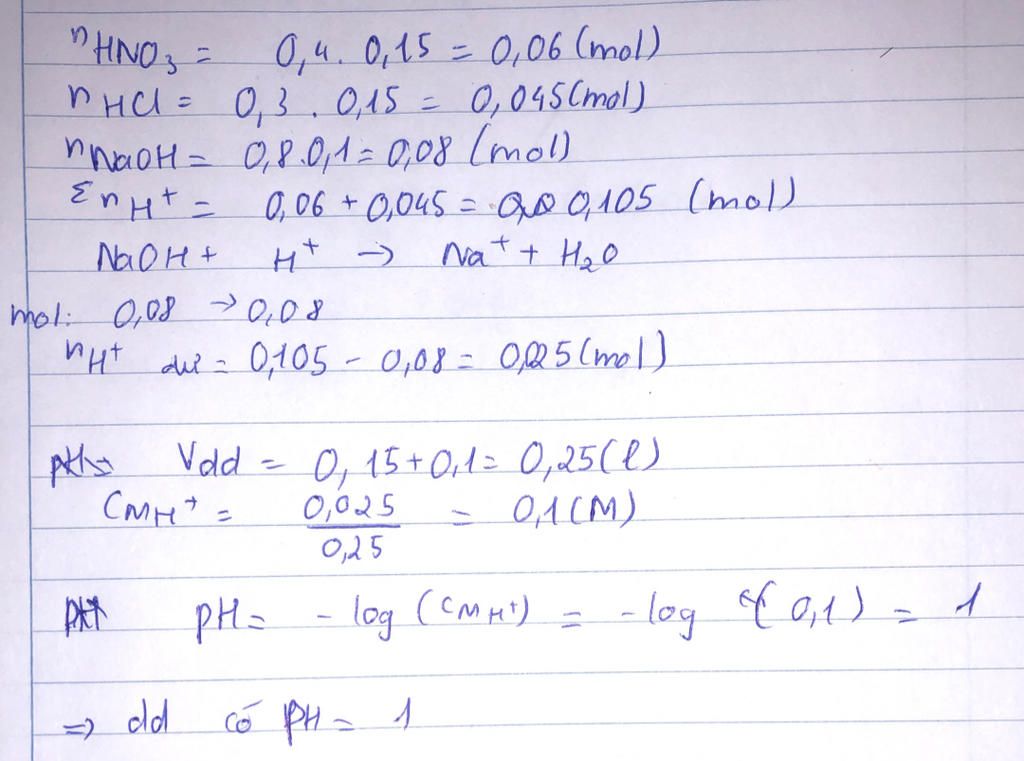 nHNO₃ = 0,4. 0,15 = 0,06 (mol)
nHCl = 0,3 . 0,15 = 0,045 (mol)
nNaOH = 0,8.0,1 = 0,08 (mol)
Σ nH⁺ = 0,06 + 0,045 = 0,105 (mol)
NaOH + H⁺ → Na⁺ + H₂O
mol: 0,08 → 0,08
nH⁺ dư = 0,105 - 0,08 = 0,025 (mol)
Vdd = 0,15 + 0,1 = 0,25 (l)
CMH⁺ = 0,025 / 0,25 = 0,1 (M)
pH = - log (CMH⁺) = - log (0,1) = 1
⇒ dd có pH = 1